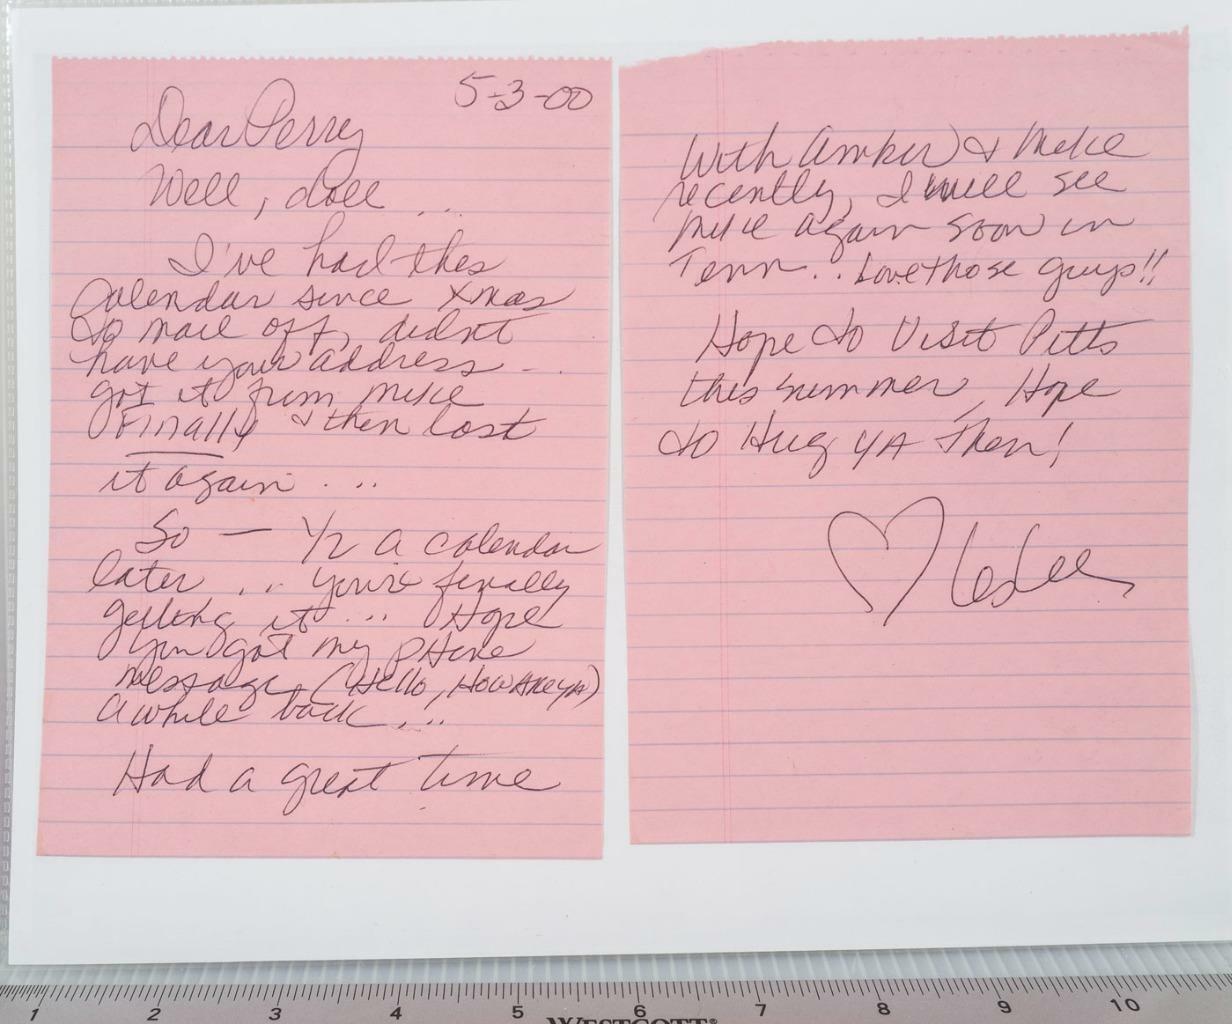 5-3-00
Dear Perry
Well, doll ...
I've had this
Calendar since Xmas
to mail off, didn't
have your address ...
got it from Mike
Finally & then lost
it again ...
So — 1/2 a calendar
later ... you're finally
getting it ... Hope
you got my phone
message, (Hello, HOW ARE YA)
awhile back ...
Had a great time
With Amber & Mike
recently, I will see
Mike again soon in
Tenn... Love those guys!!
Hope to Visit Pitts
this summer, Hope
to Hug YA Then!
1 2 3 4 5 6 7 8 9 10
WESTCOTT®